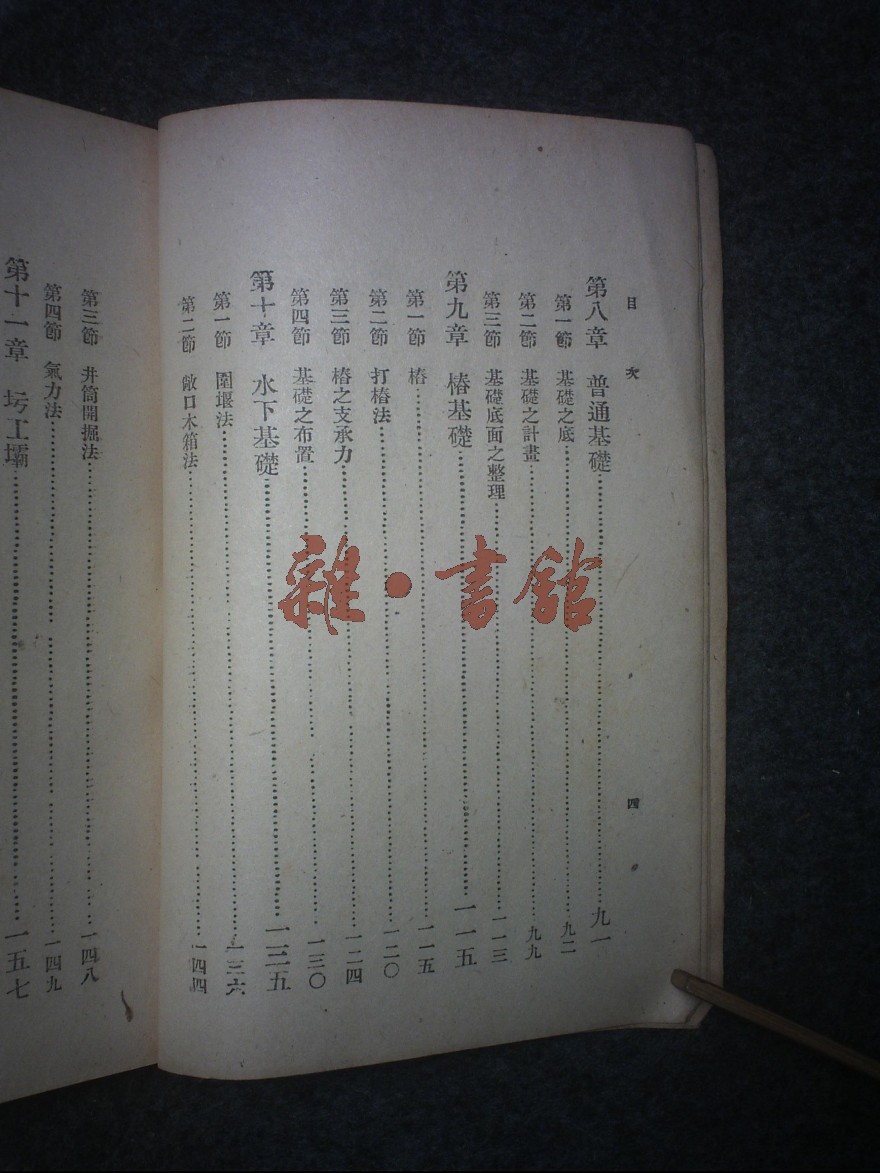 目次
四
第八章 普通基礎……九一
第一節 基礎之底……九二
第二節 基礎之計畫……九九
第三節 基礎底面之整理……一一三
第九章 樁基礎……一一五
第一節 樁……一一五
第二節 打樁法……一二〇
第三節 樁之支承力……一二四
第四節 基礎之布置……一三〇
第十章 水下基礎……一三五
第一節 圍堰法……一三六
第二節 敞口木箱法……一四四
第三節 井筒開掘法……一四八
第四節 氣力法……一四九
第十一章 圬工壩……一五七
雜·書館